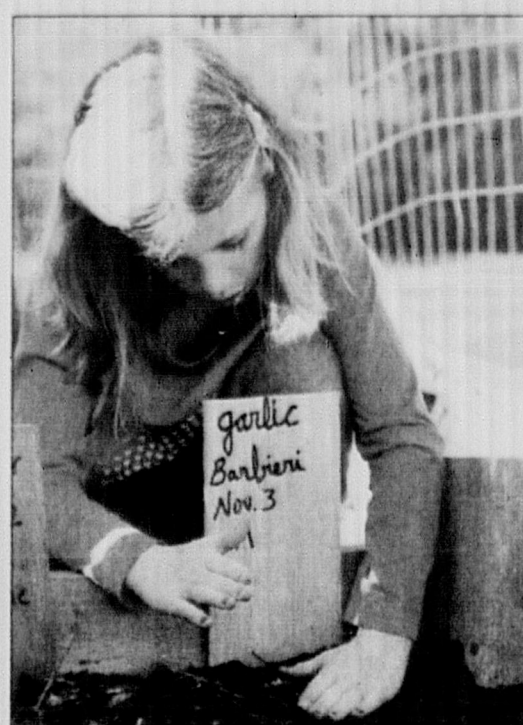 garlic
Barbieri
Nov. 3